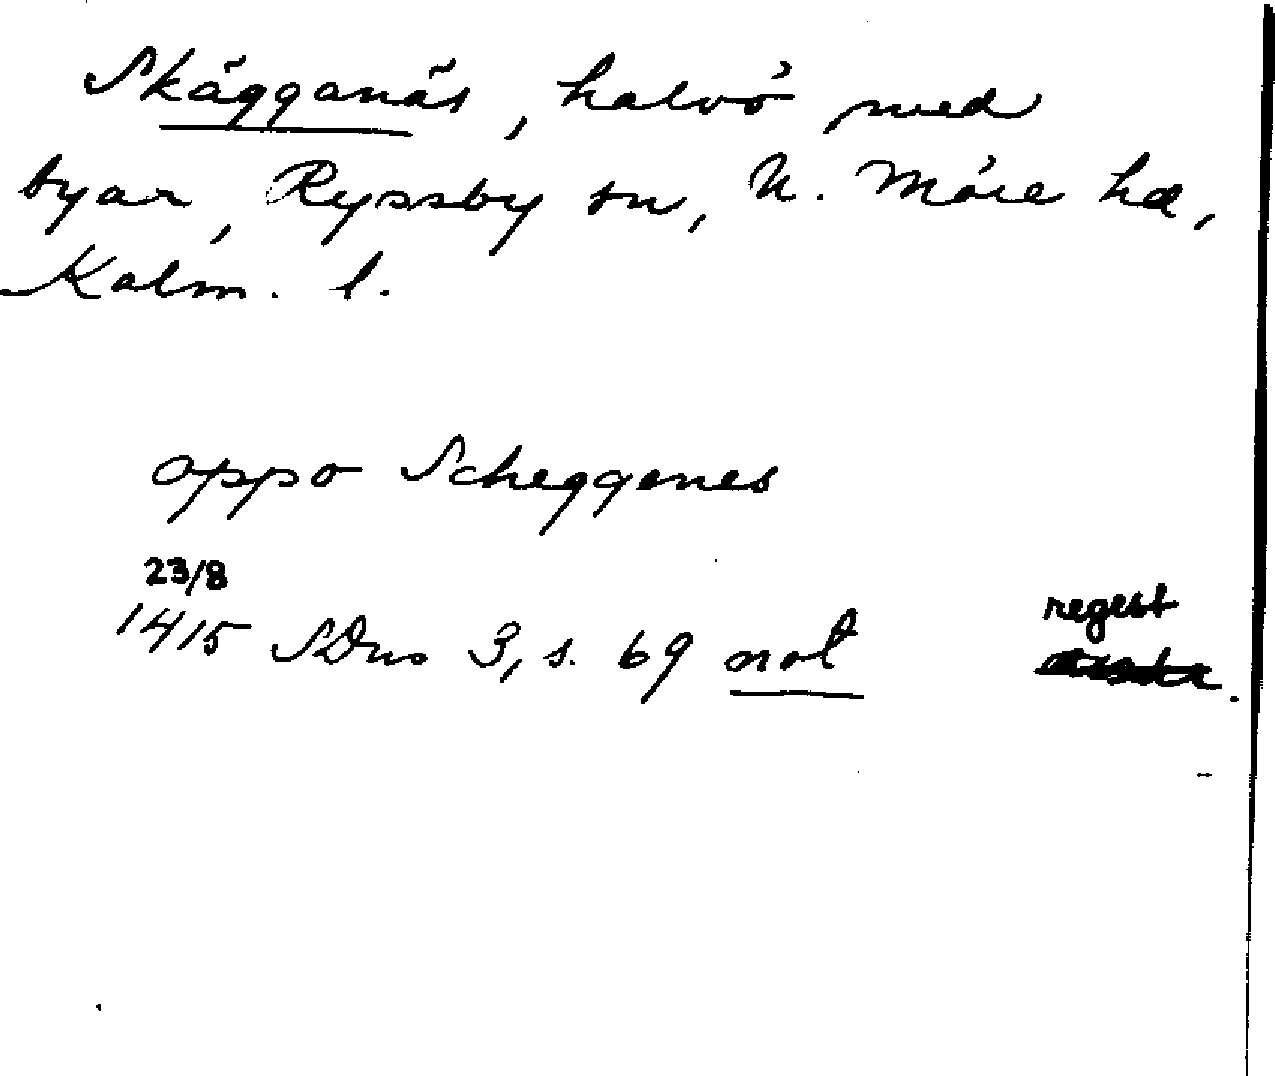 Skägganäs, halvö med
byar, Ryssby sn, N. Möre hd,
Kalm. l.
oppo Scheggenes
23/8
1415 SDns 3, s. 69 not
regest